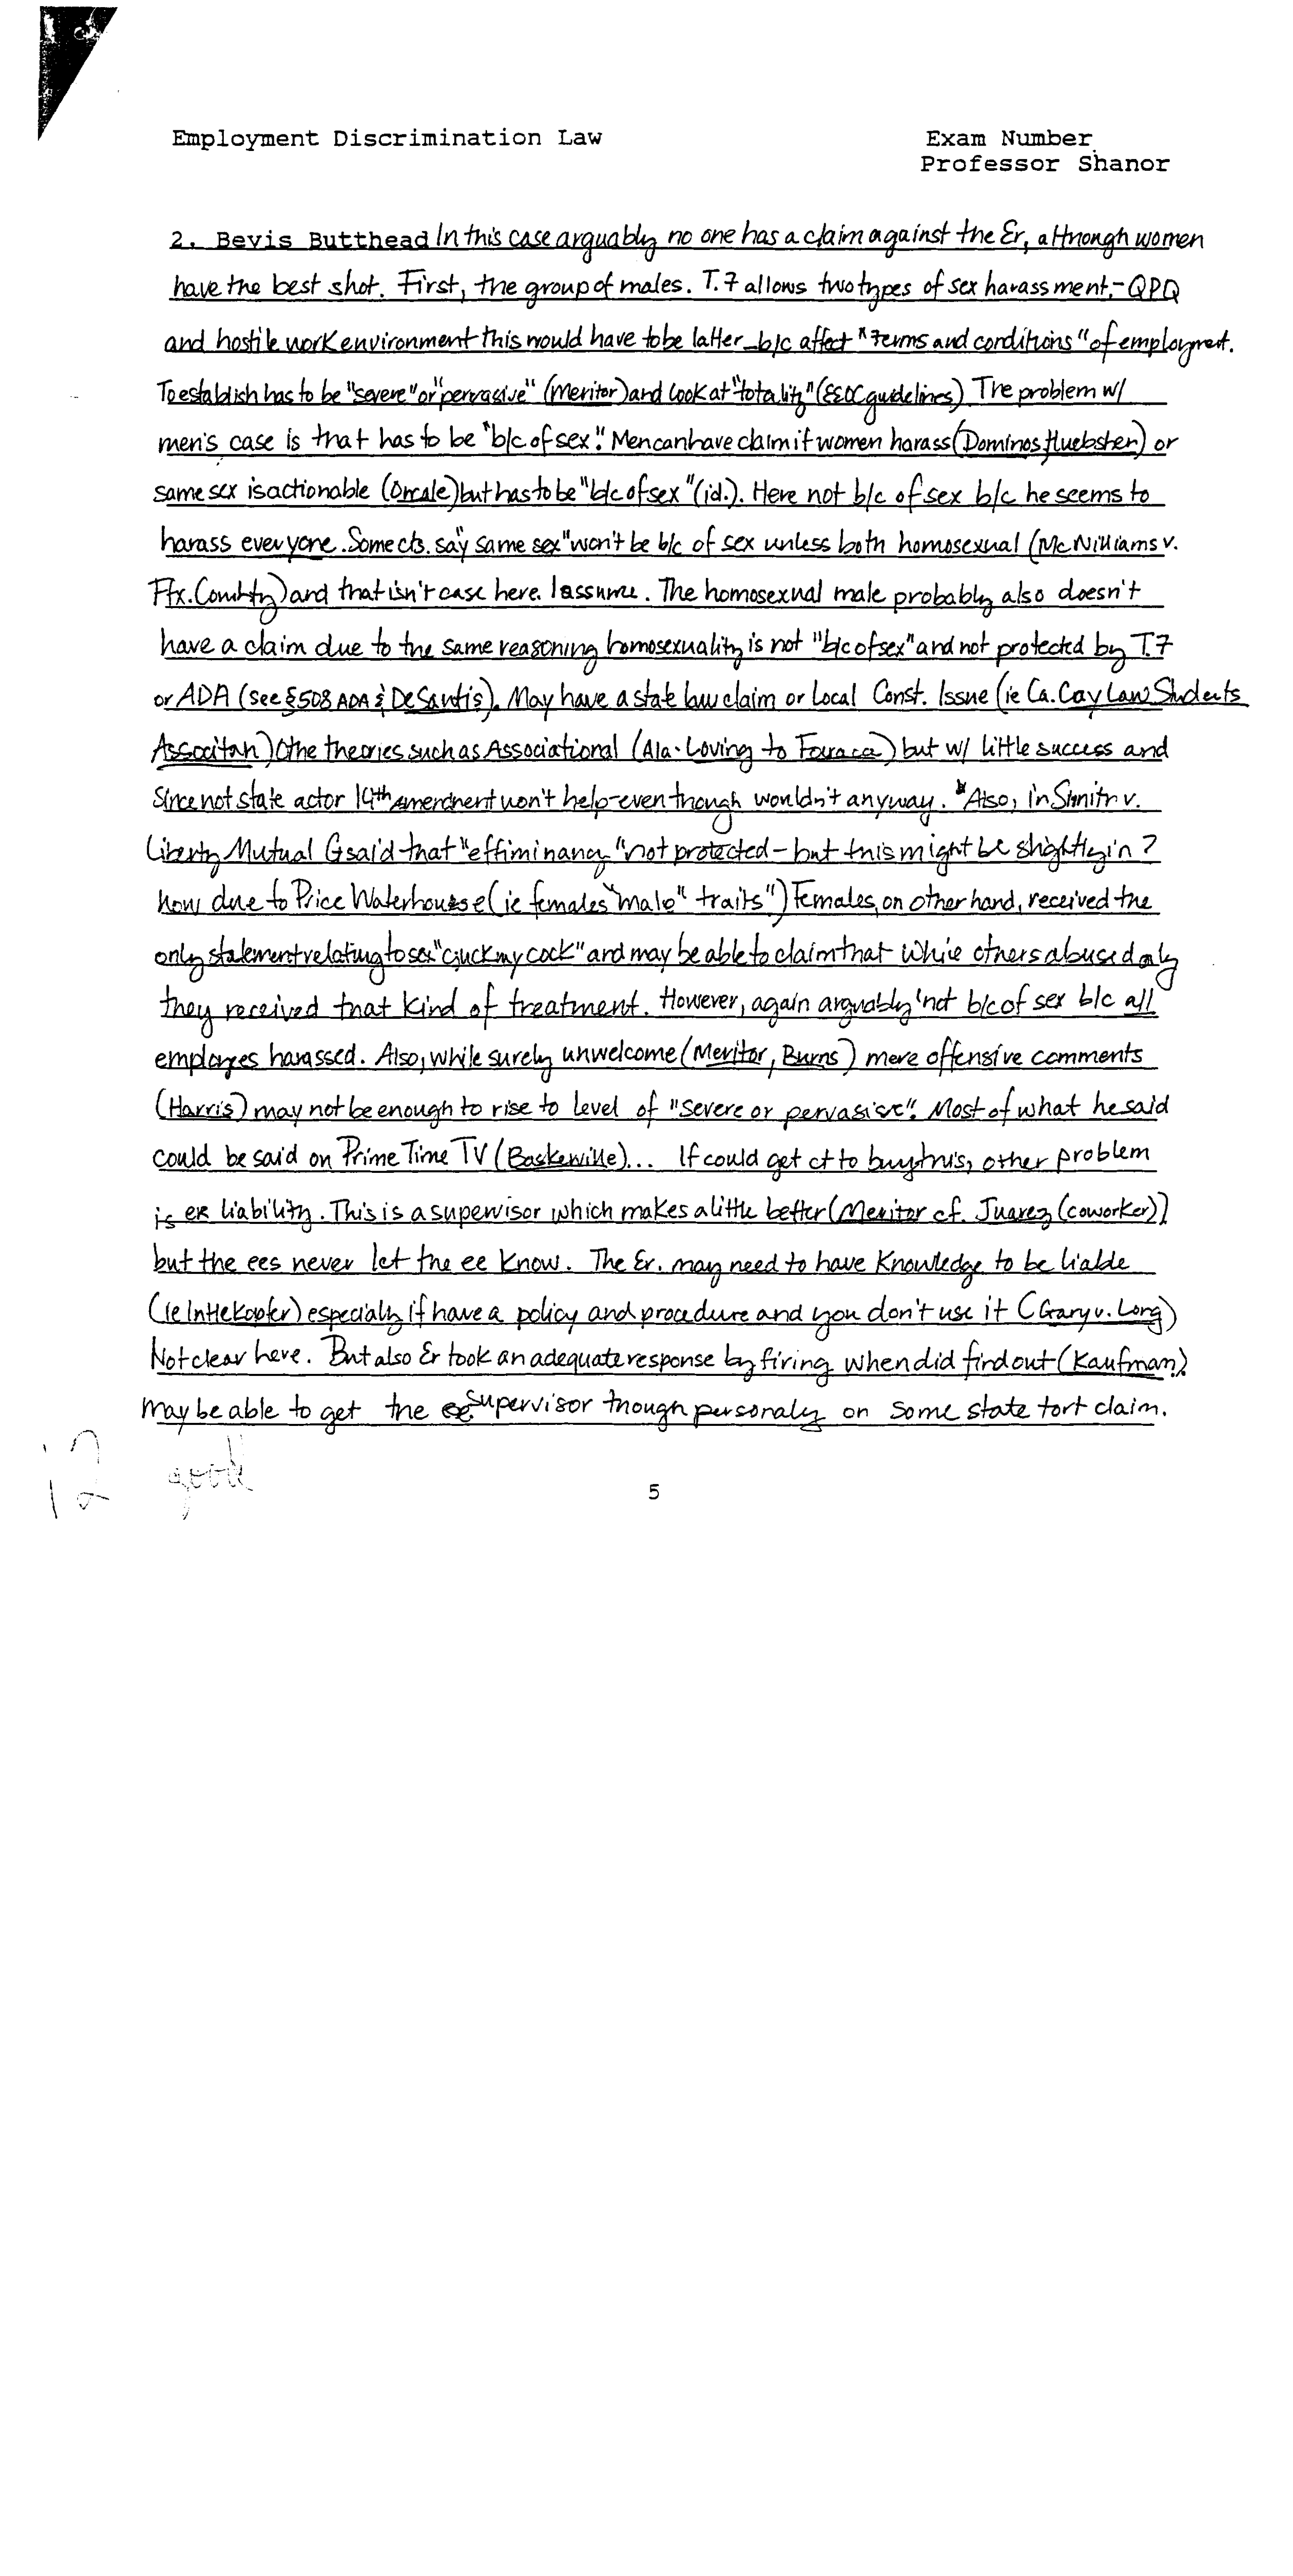 Employment Discrimination Law Exam Number
Professor Shanor
2. Bevis Butthead In this case arguably no one has a claim against the Er, although women
have the best shot. First, the group of males. T.7 allows two types of sex harassment,- QPQ
and hostile work environment this would have to be latter b/c affect "terms and conditions" of employment.
To establish has to be "severe" or "pervasive" (Meritor) and look at "totality" (EEOC guidelines) The problem w/
men's case is that has to be "b/c of sex". Men can have claim if women harass (Dominos, Huebshen) or
same sex is actionable (Oncale) but has to be "b/c of sex" (id.). Here not b/c of sex b/c he seems to
harass everyone. Some cts. say "same sex" won't be b/c of sex unless both homosexual (McWilliams v.
Ffx. County) and that isn't case here. I assume. The homosexual male probably also doesn't
have a claim due to the same reasoning homosexuality is not "b/c of sex" and not protected by T.7
or ADA (see § 508 ADA & DeSantis). May have a state law claim or Local Const. Issue (ie Ca. Gay Law Students
Associtan) Othe theories such as Associational (Ala. Loving to ) but w/ little success and
Since not state actor 14th Amendment won't help - even though wouldn't anyway. * Also, in Smith v.
Liberty Mutual Ct said that "effiminancy" not protected - but this might be slightly in ?
now due to Price Waterhouse (ie females "male" traits") Females, on other hand, received the
only statement relating to sex "suck my cock" and may be able to claim that while others abused only
they received that kind of treatment. However, again arguably not b/c of sex b/c all
employees harassed. Also, while surely unwelcome (Meritor, Burns) mere offensive comments
(Harris) may not be enough to rise to level of "severe or pervasive". Most of what he said
could be said on Prime Time TV (Baskerville)... If could get ct to buy this, other problem
is er liability. This is a supervisor which makes a little better (Meritor cf. Juarez (coworker))
but the ees never let the ee know. The Er. may need to have knowledge to be liable
(ie ) especially if have a policy and procedure and you don't use it (Gary v. Long)
Not clear here. But also Er took an adequate response by firing when did find out (Kaufman).
May be able to get the supervisor though personaly on some state tort claim.
12 good
5